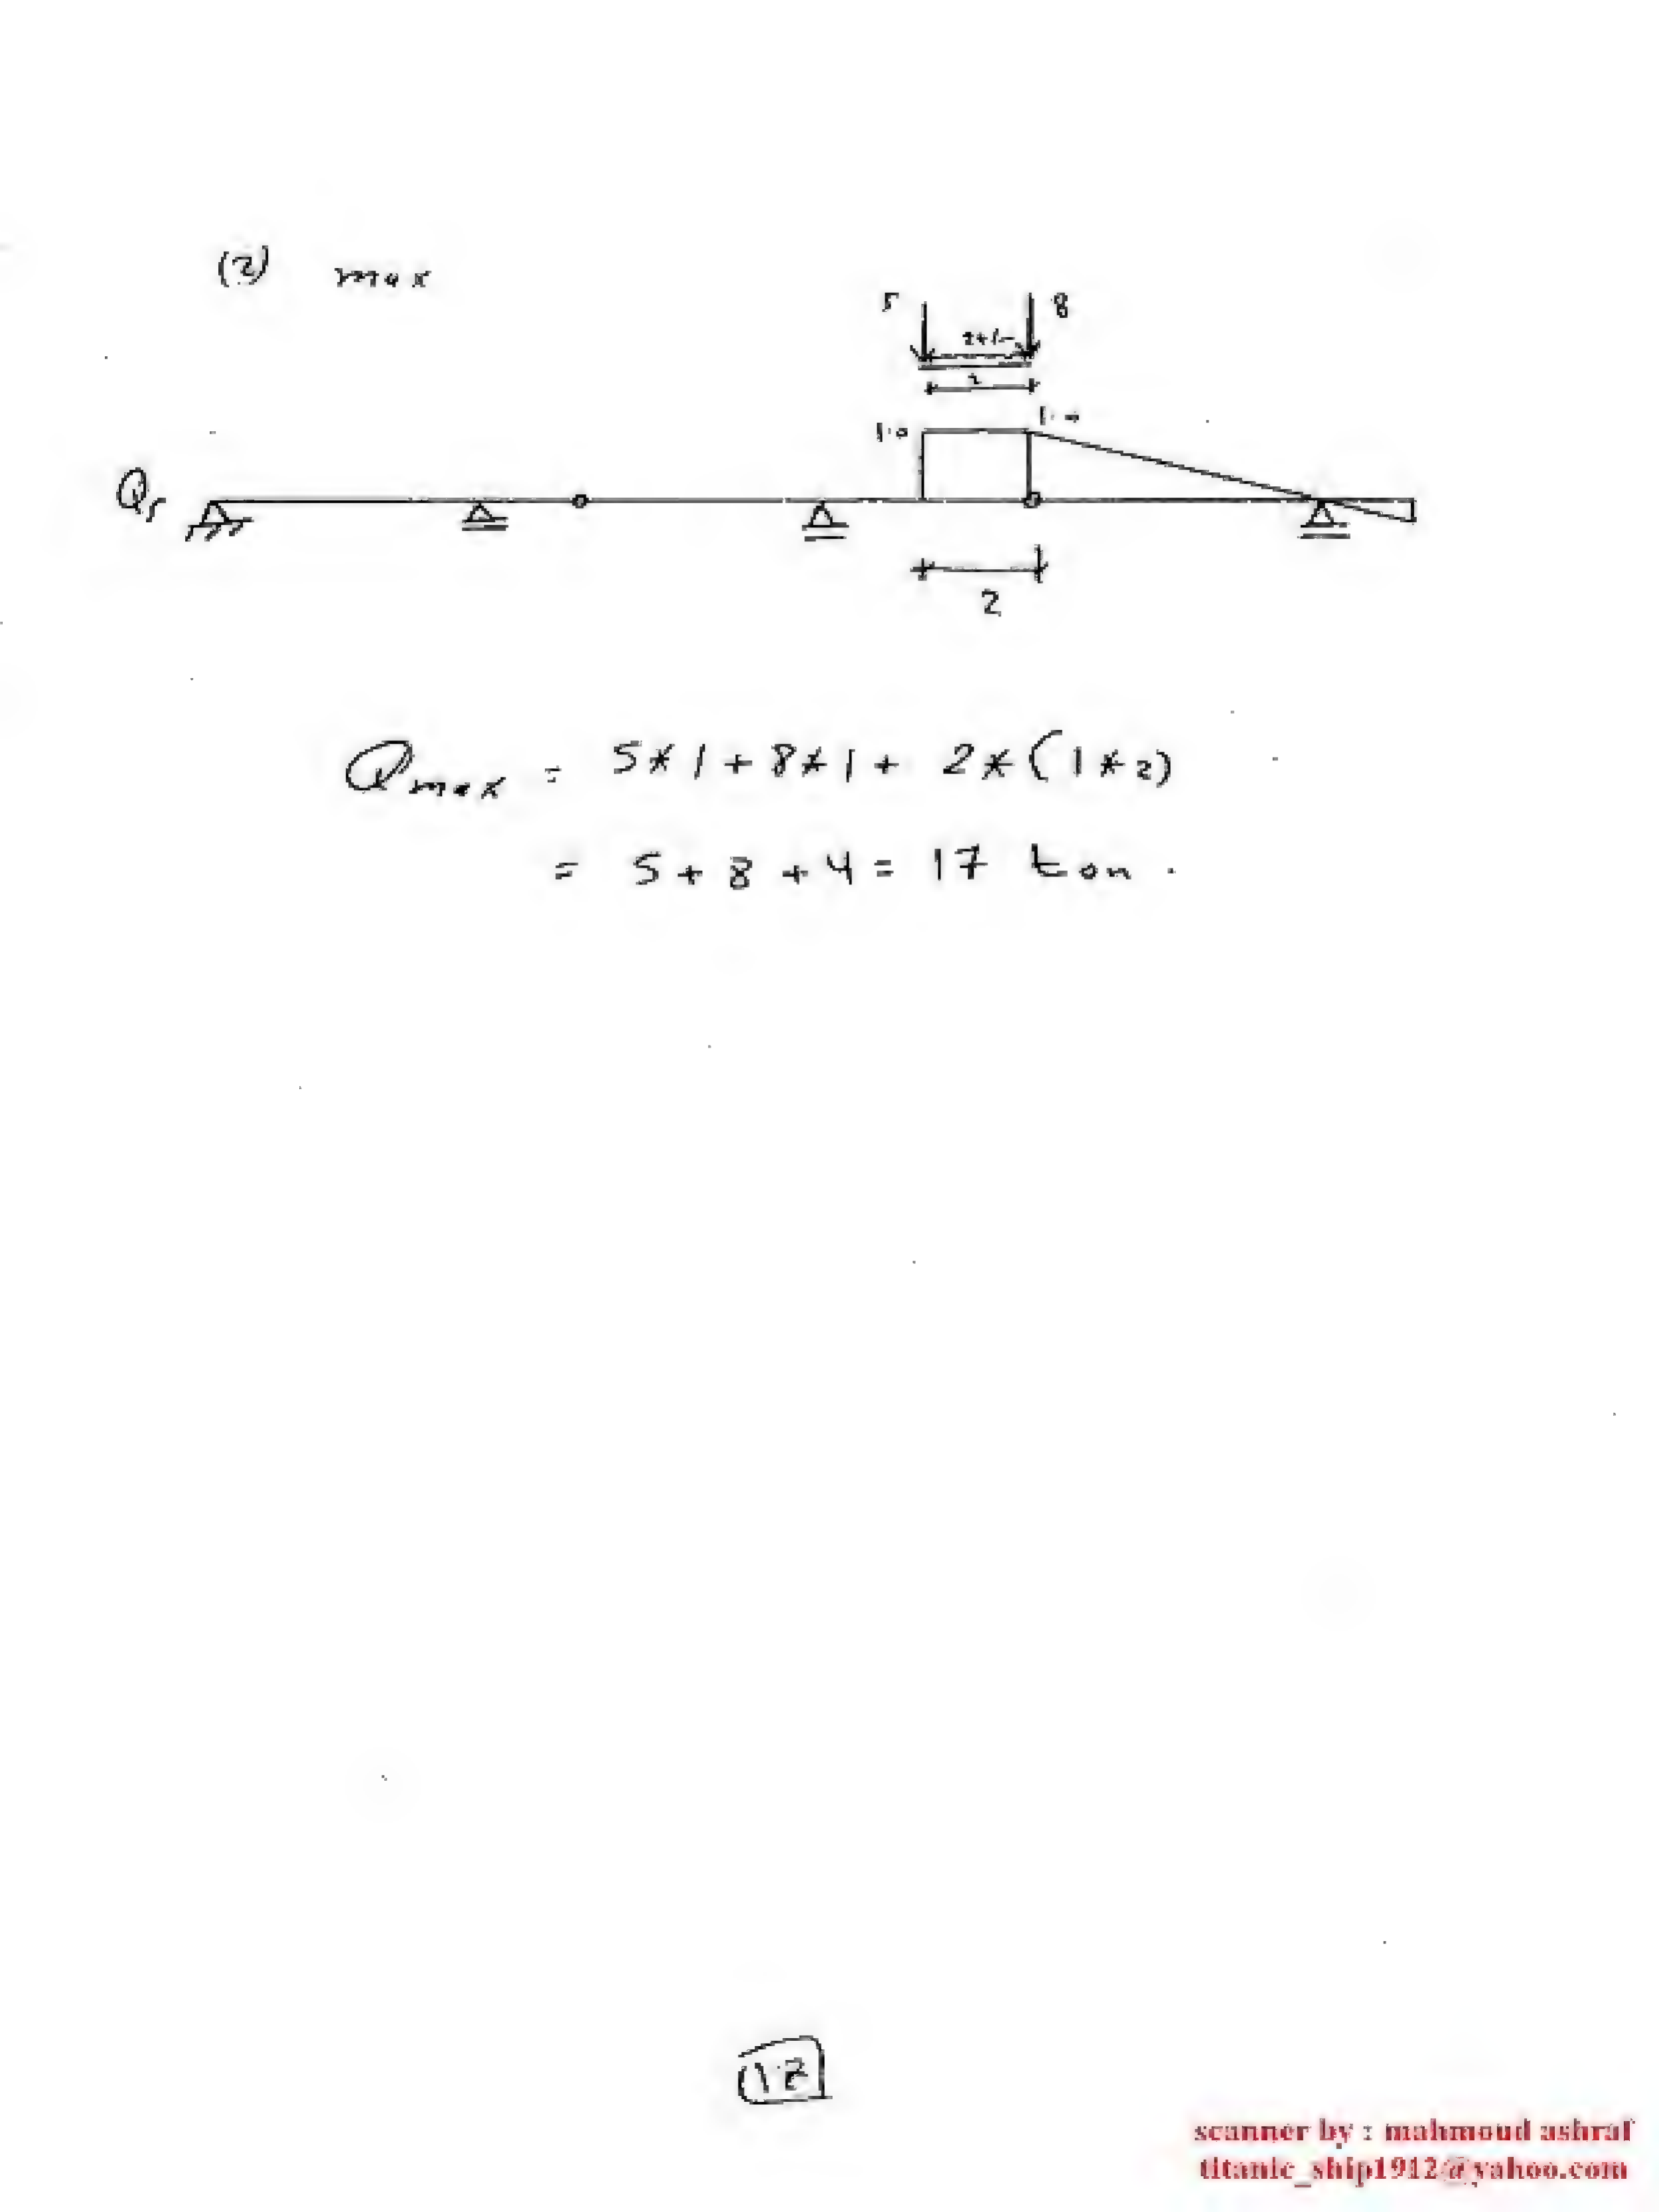 (2) max
5 8
2t/m
2
1.0 1.0
Qs
2
Qmax = 5*1+8*1+ 2*(1*2)
= 5+8+4= 17 ton.
scanner by : mahmoud ashraf
titanic_ship1912@yahoo.com